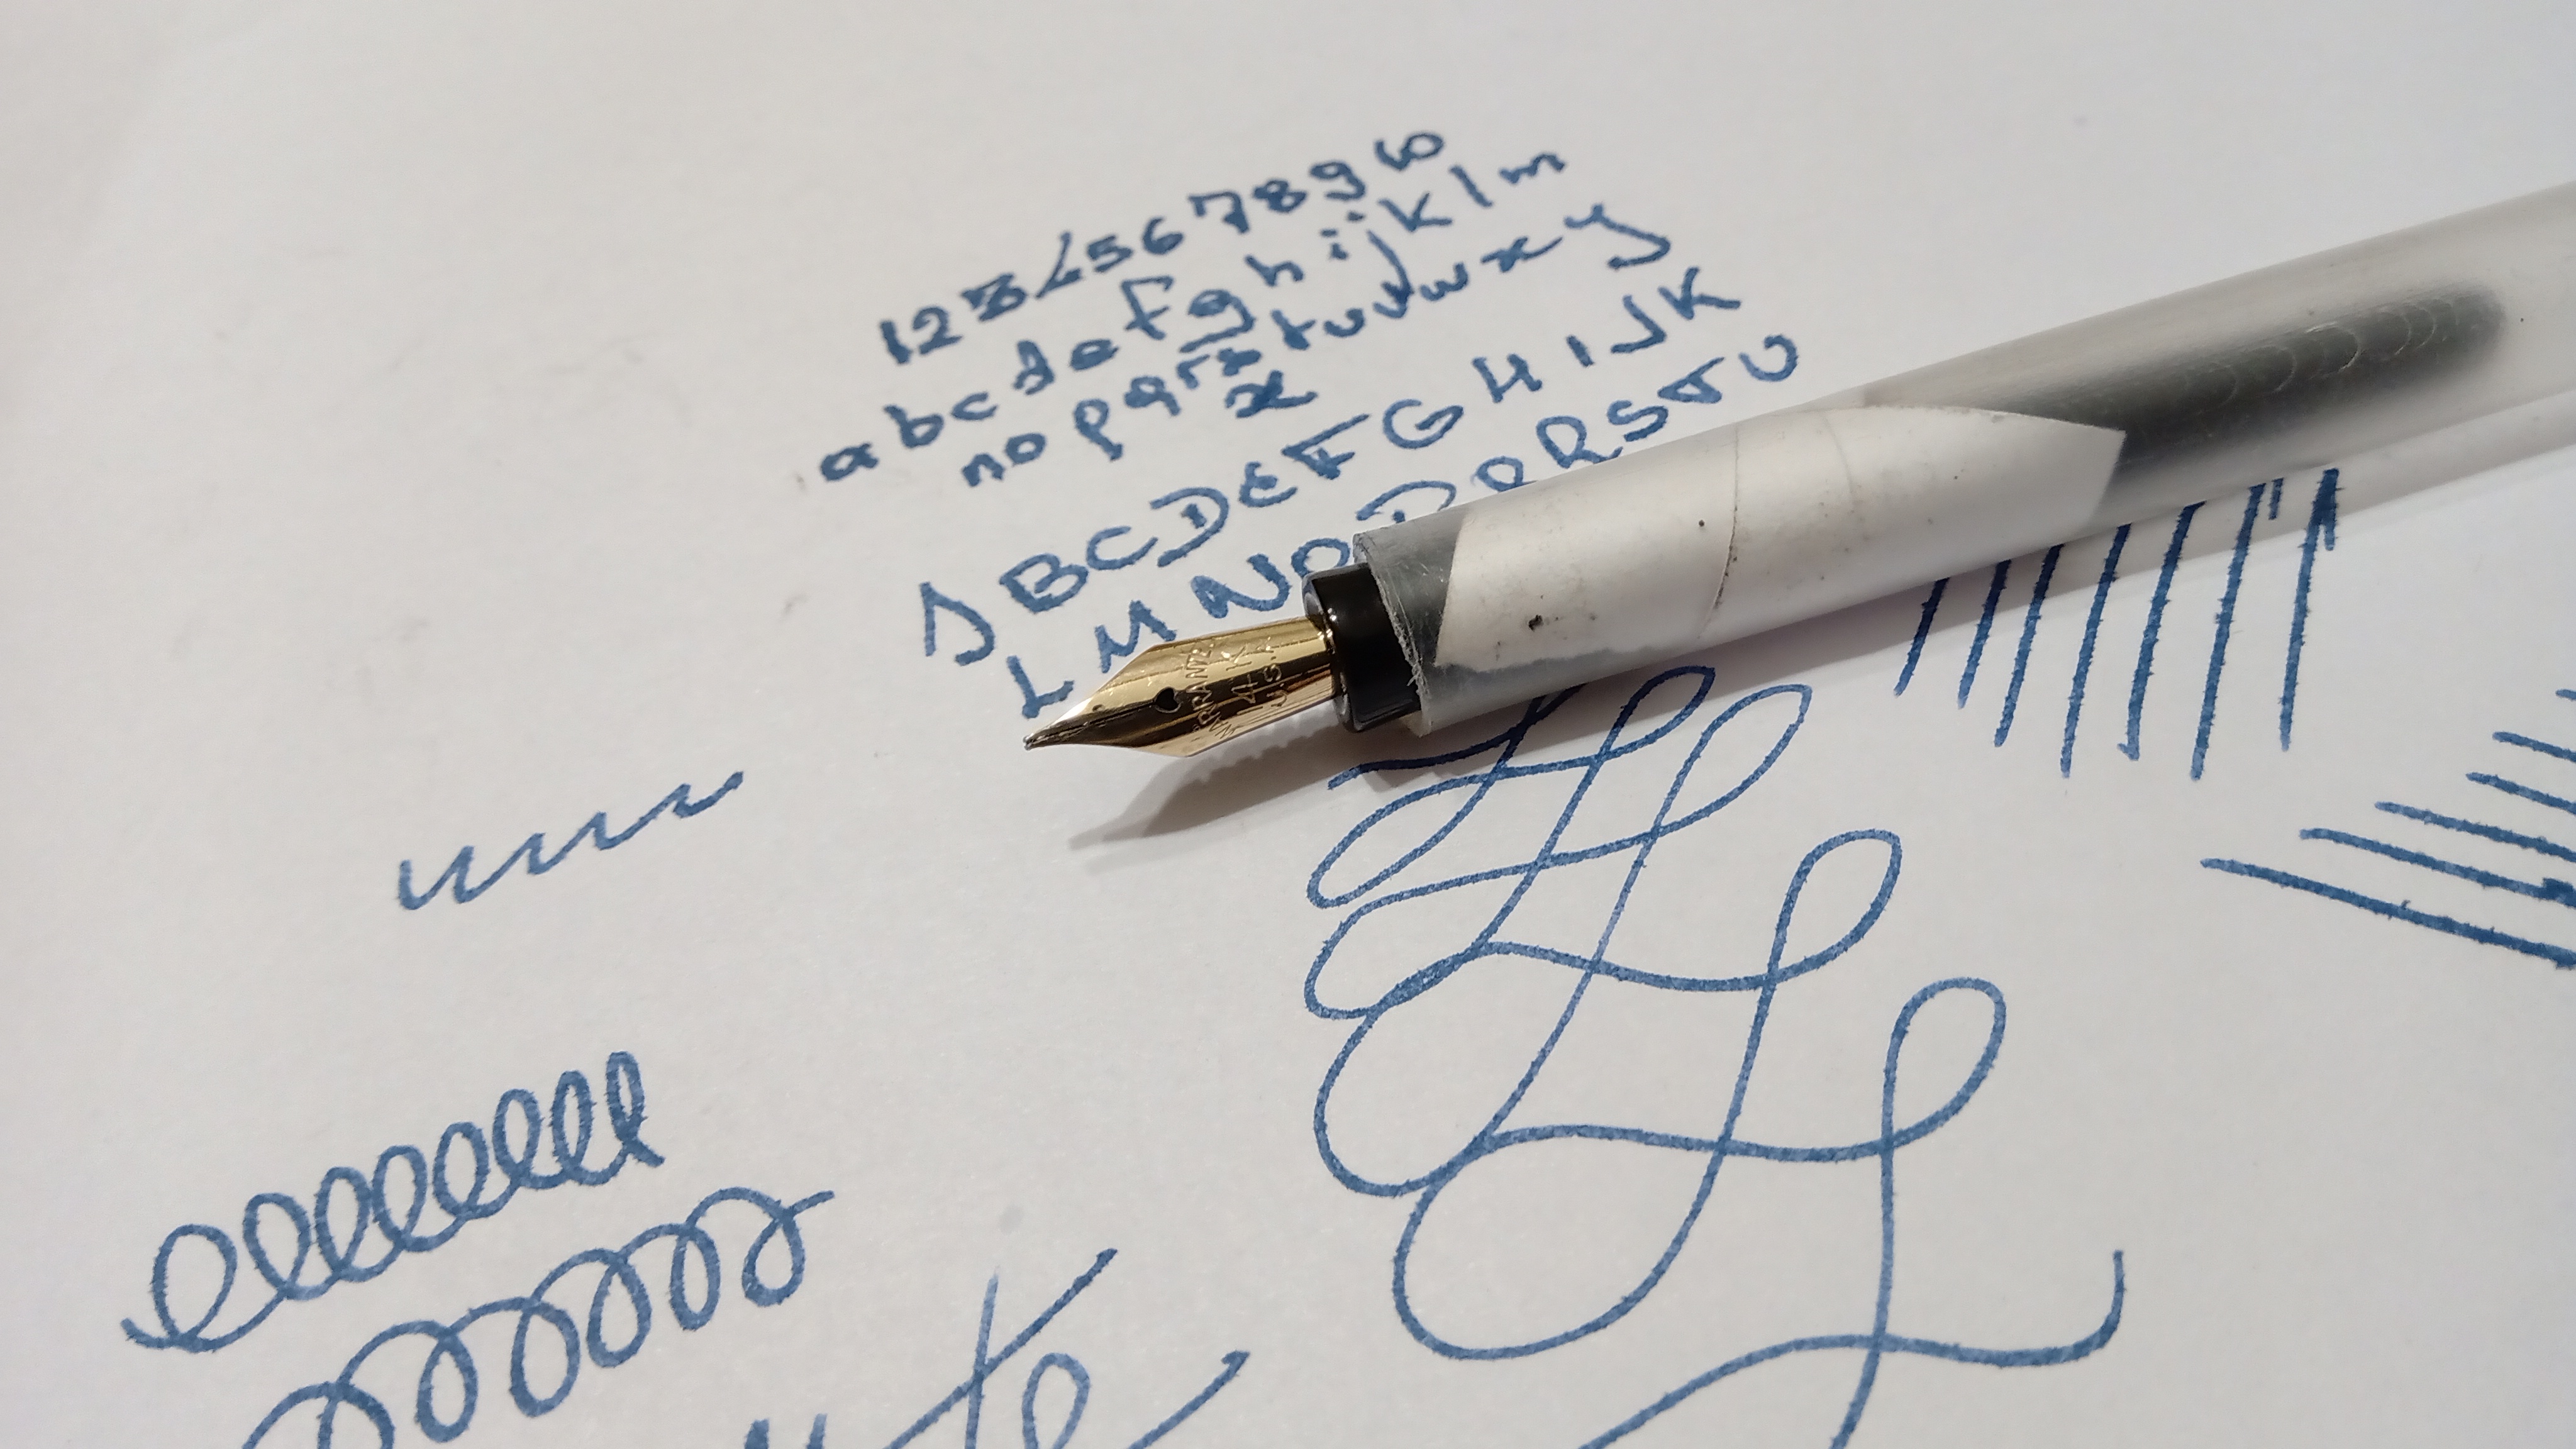 12345678910
abcdefghijklm
nopqrstuvwxy
z
ABCDEFGHIJK
LMNOPQRSTU
WARRANTED
14K
U.S.A
te